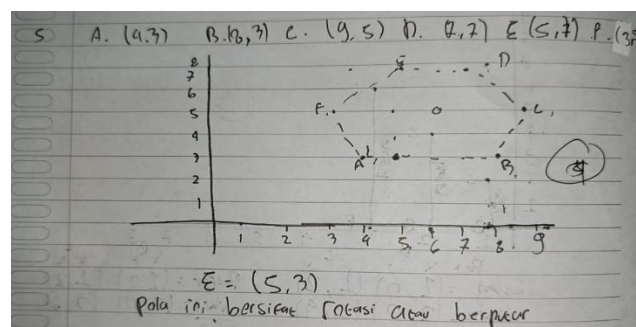 5 A. (4.3) B.(8,3) C. (9,5) D. (7,7) E (5,7) F. (3,5
8
7 E D
6
5 F. C.
4
3 A B
2
1
1 2 3 4 5 6 7 8 9
E = (5,3)
Pola ini bersifat rotasi atau berputar